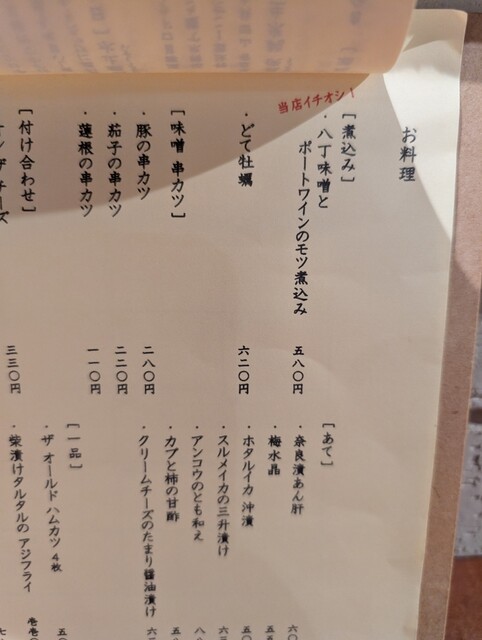 お料理
当店イチオシ！
[煮込み]
・八丁味噌と
ポートワインのモツ煮込み
五八〇円
・どて牡蠣
六二〇円
[味噌 串カツ]
・豚の串カツ
二八〇円
・茄子の串カツ
二二〇円
・蓮根の串カツ
一一〇円
[付け合わせ]
三三〇円
[あて]
・奈良漬あん肝
・梅水晶
・ホタルイカ 沖漬
・スルメイカの三升漬け
・アンコウのとも和え
・カブと柿の甘酢
・クリームチーズのたまり醤油漬け
[一品]
・ザ オールド ハムカツ 4枚
・柴漬けタルタルの アジフライ